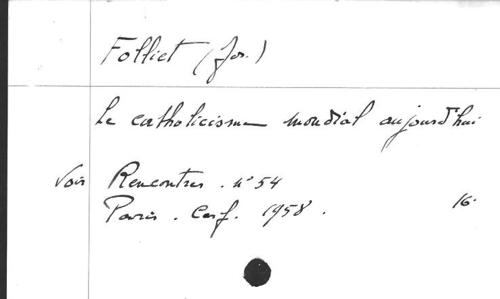 Folliet (Jos.)
Le catholicisme mondial aujourd'hui
Voir Rencontres . n° 54
Paris . Cerf . 1958 . 16°